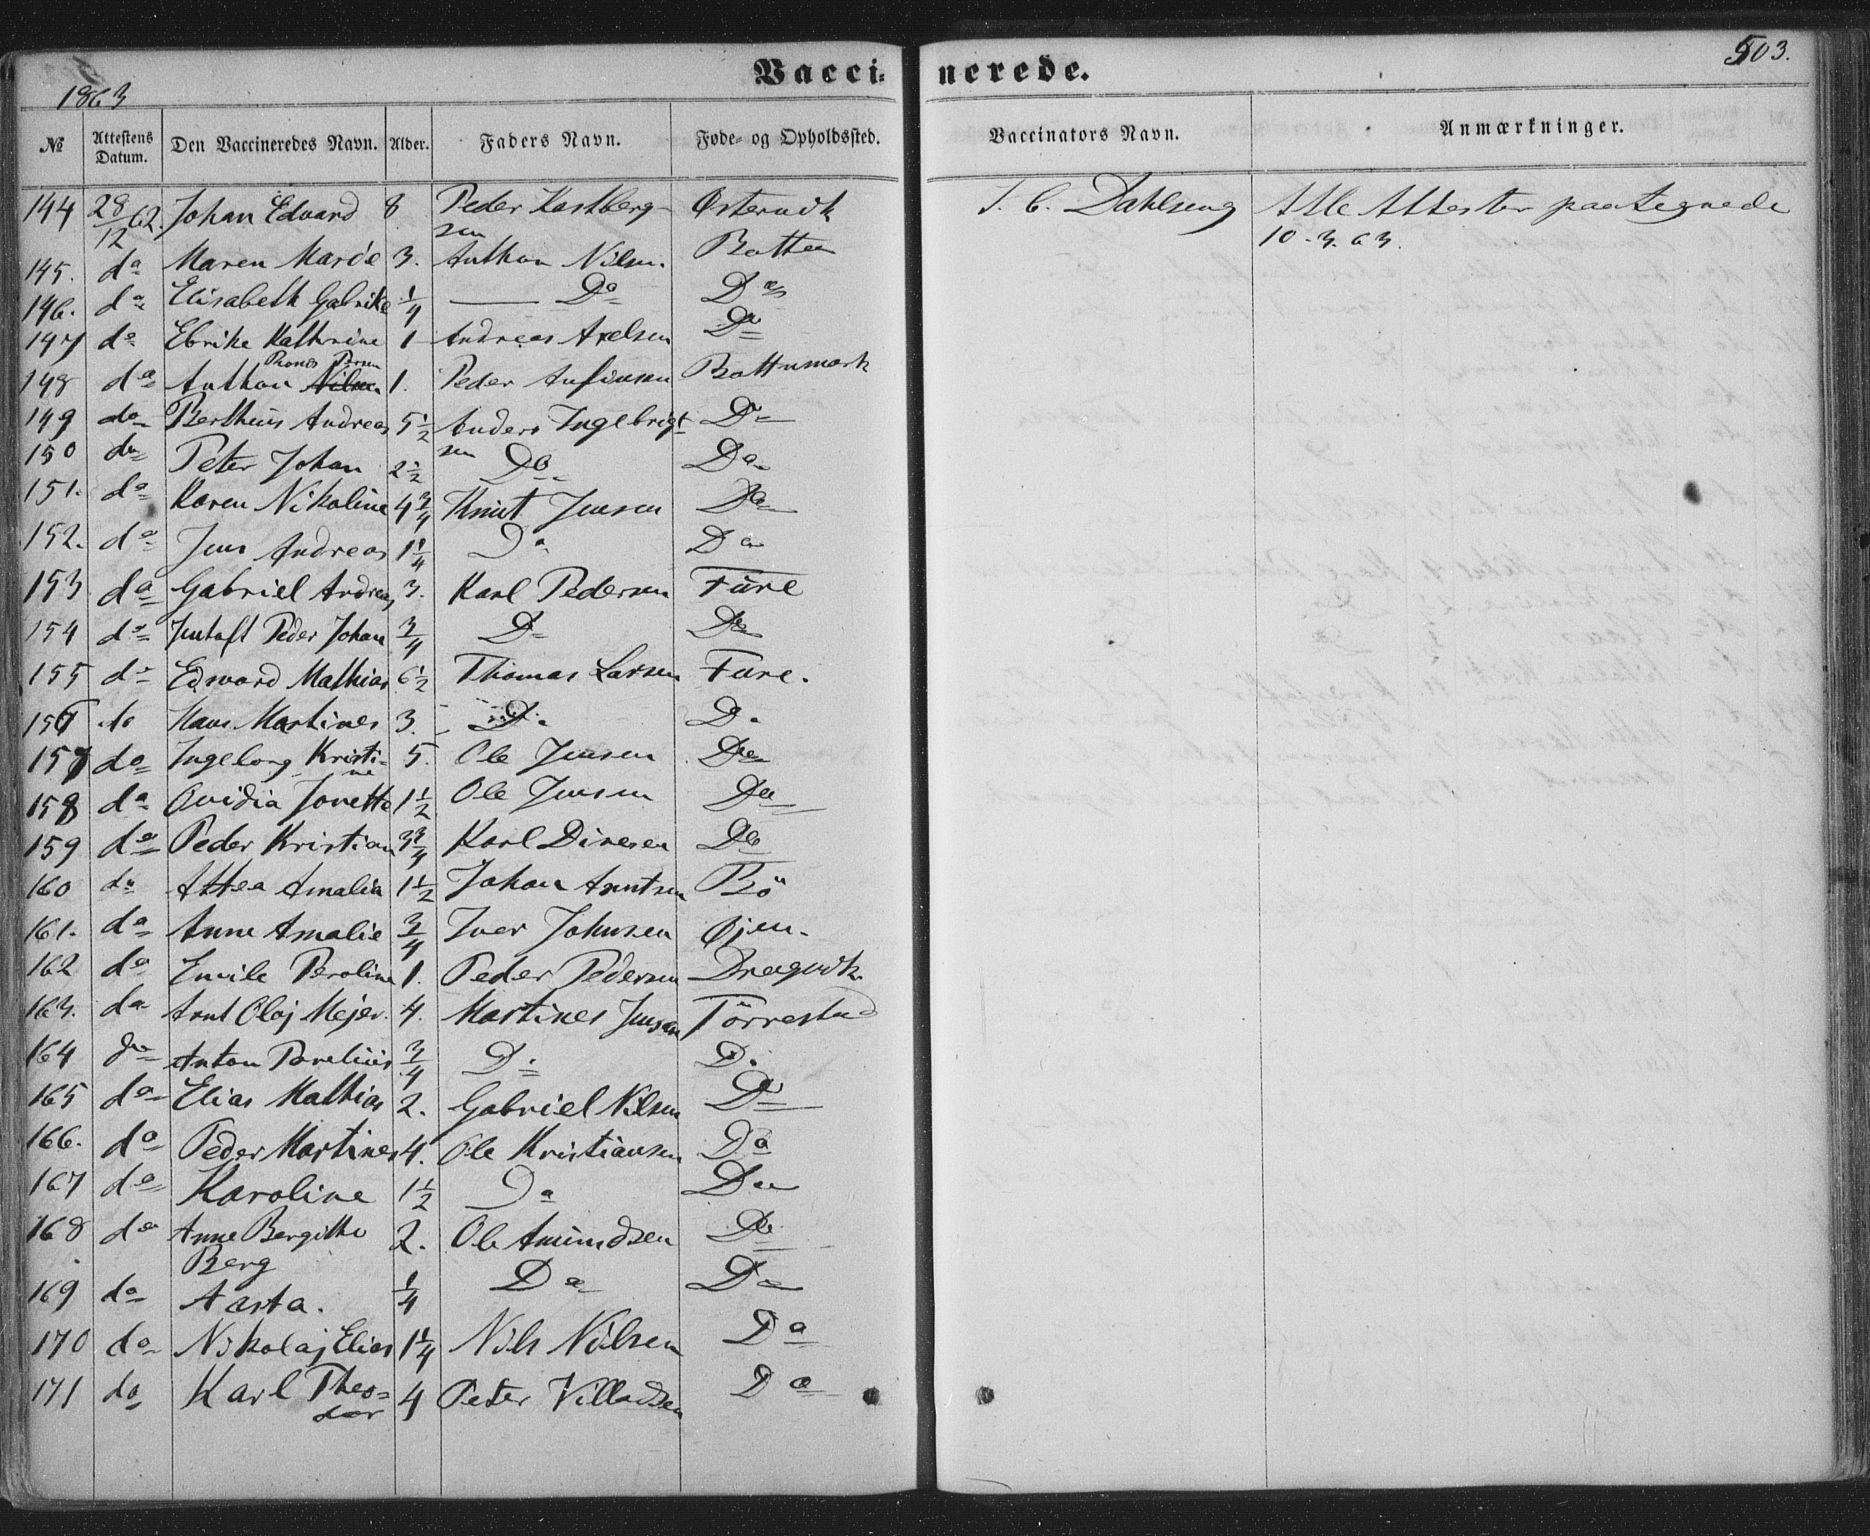 Vaccinerede.
503.
1863
№ Attestens Datum. Den Vaccineredes Navn. Alder. Faders Navn. Føde- og Opholdssted. Vaccinators Navn. Anmærkninger.
144 28/12 62. Johan Edvard 8 Peder Kastbergsen Østervik Alle Attester paategnede
10-3-63.
145. da Maren 3. Anthon Nilsen Botten
146. da Elisabeth 1/4 — Da Da
147 da Ebrike Kathrine 1 Andreas Axelsen Da
148 da Anthon 1. Peder Anfinsen Bottnmark
149 da Berthius Andreas 5 1/2 Anders Ingebrigtsen Da
150 da Peter Johan 2 1/2 Do Da
151. da Karen Nikoline 4 3/4 Knut Jensen Da
152. da Jens Andreas 1 1/4 Da Da
153 da Gabriel Andreas 3. Karl Pedersen Fure
154 da Peder Johan 3/4 D Da
155 da Edward Mathias 6 1/2 Thomas Larsen Fure.
156 do Hans Martines 3. Do. Do.
157 da Ingeborg Kristine 5. Ole Jensen Da
158 da Ovidia Jonette 1 1/2 Ole Jensen Da
159 da Peder Kristian 3 3/4 Karl Dinesen Do
160 da Althea Amalia 1 1/2 Johan Arntsen Bö
161. da Anne Amalie 3/4 Iver Johnsen Øjen.
162 da Emile Peroline 1. Peder Pedersen Dregvik
163. da Arnt Olaj Mejer. 4. Martines Jensen Törrestad
164 da Anton Parelius 3/4 D. D.
165 da Elias Mathias 2. Gabriel Nilsen Da
166. da Peder Martines 4. Ole Kristiansen Da
167 da Karoline 1 1/2 Da Da
168 da Anne Bergitthe Berg 2. Ole Amundsen Do
169 da Aasta. 1/4 Da Da
170 da Nikolaj Elias 1 1/4 Nils Nilsen Da
171 da Karl Theodor 4 Peter Villadsen Da